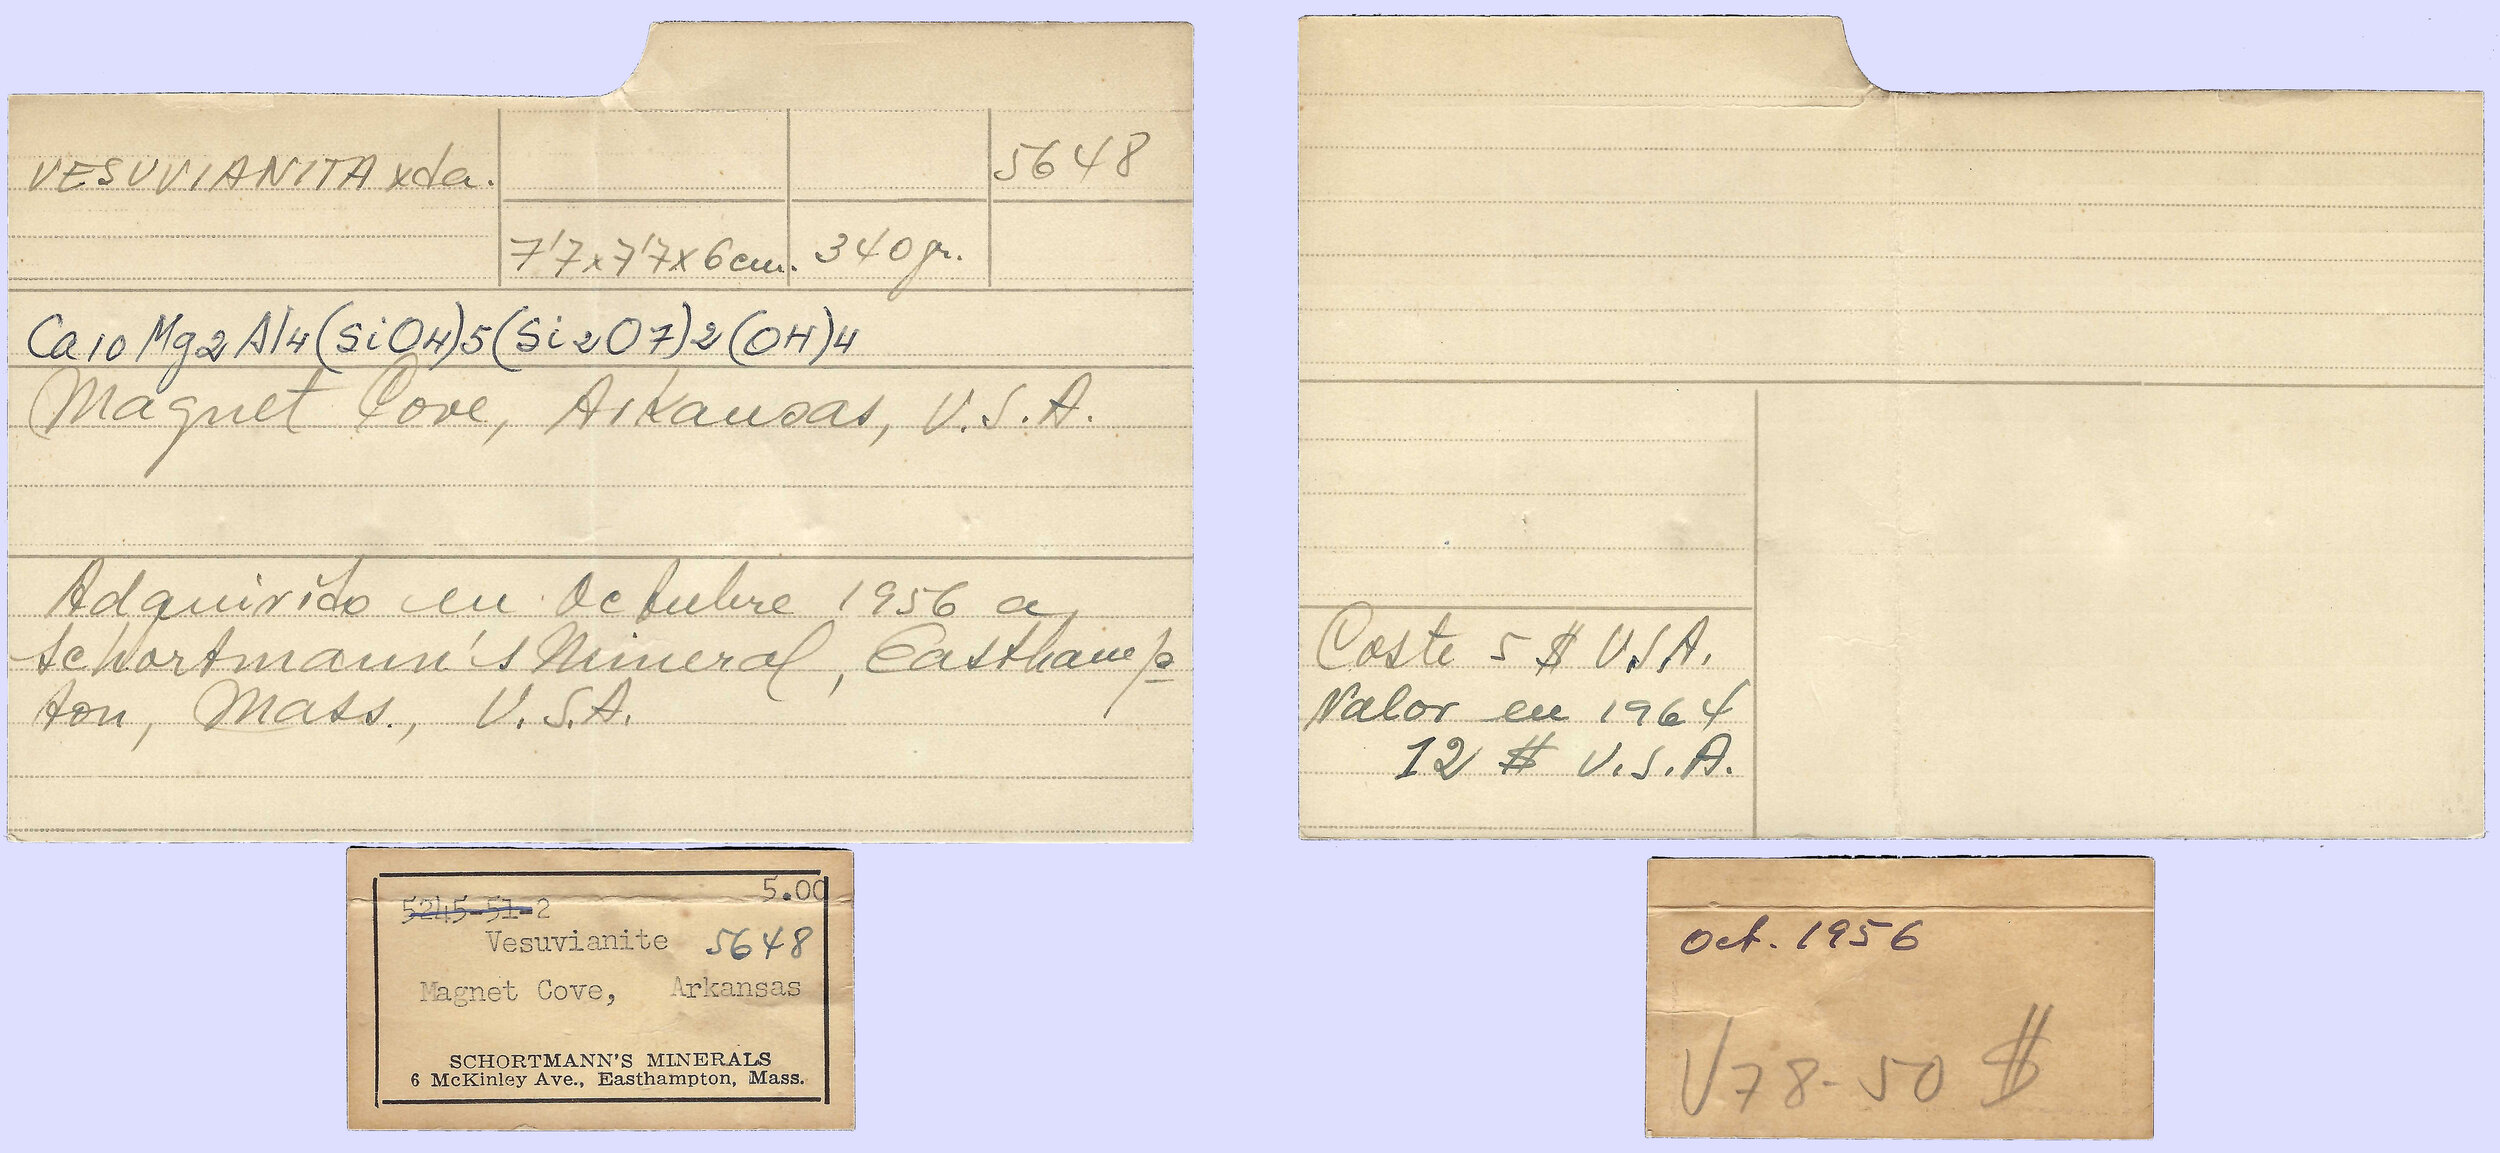 VESUVIANITA xda.
5648
7'7x7'7x6cm. 340gr.
Ca10 Mg2 Al4(SiO4)5(Si2O7)2(OH)4
Magnet Cove, Arkansas, U.S.A.
Adquirido en Octubre 1956 a
Schortmann's Mineral, Easthamp
ton, Mass., U.S.A.
Coste 5 $ USA.
Valor en 1964
12 $ U.S.A.
5.00
5245-51-2
Vesuvianite 5648
Magnet Cove, Arkansas
SCHORTMANN'S MINERALS
6 McKinley Ave., Easthampton, Mass.
Oct. 1956
V78-50 $